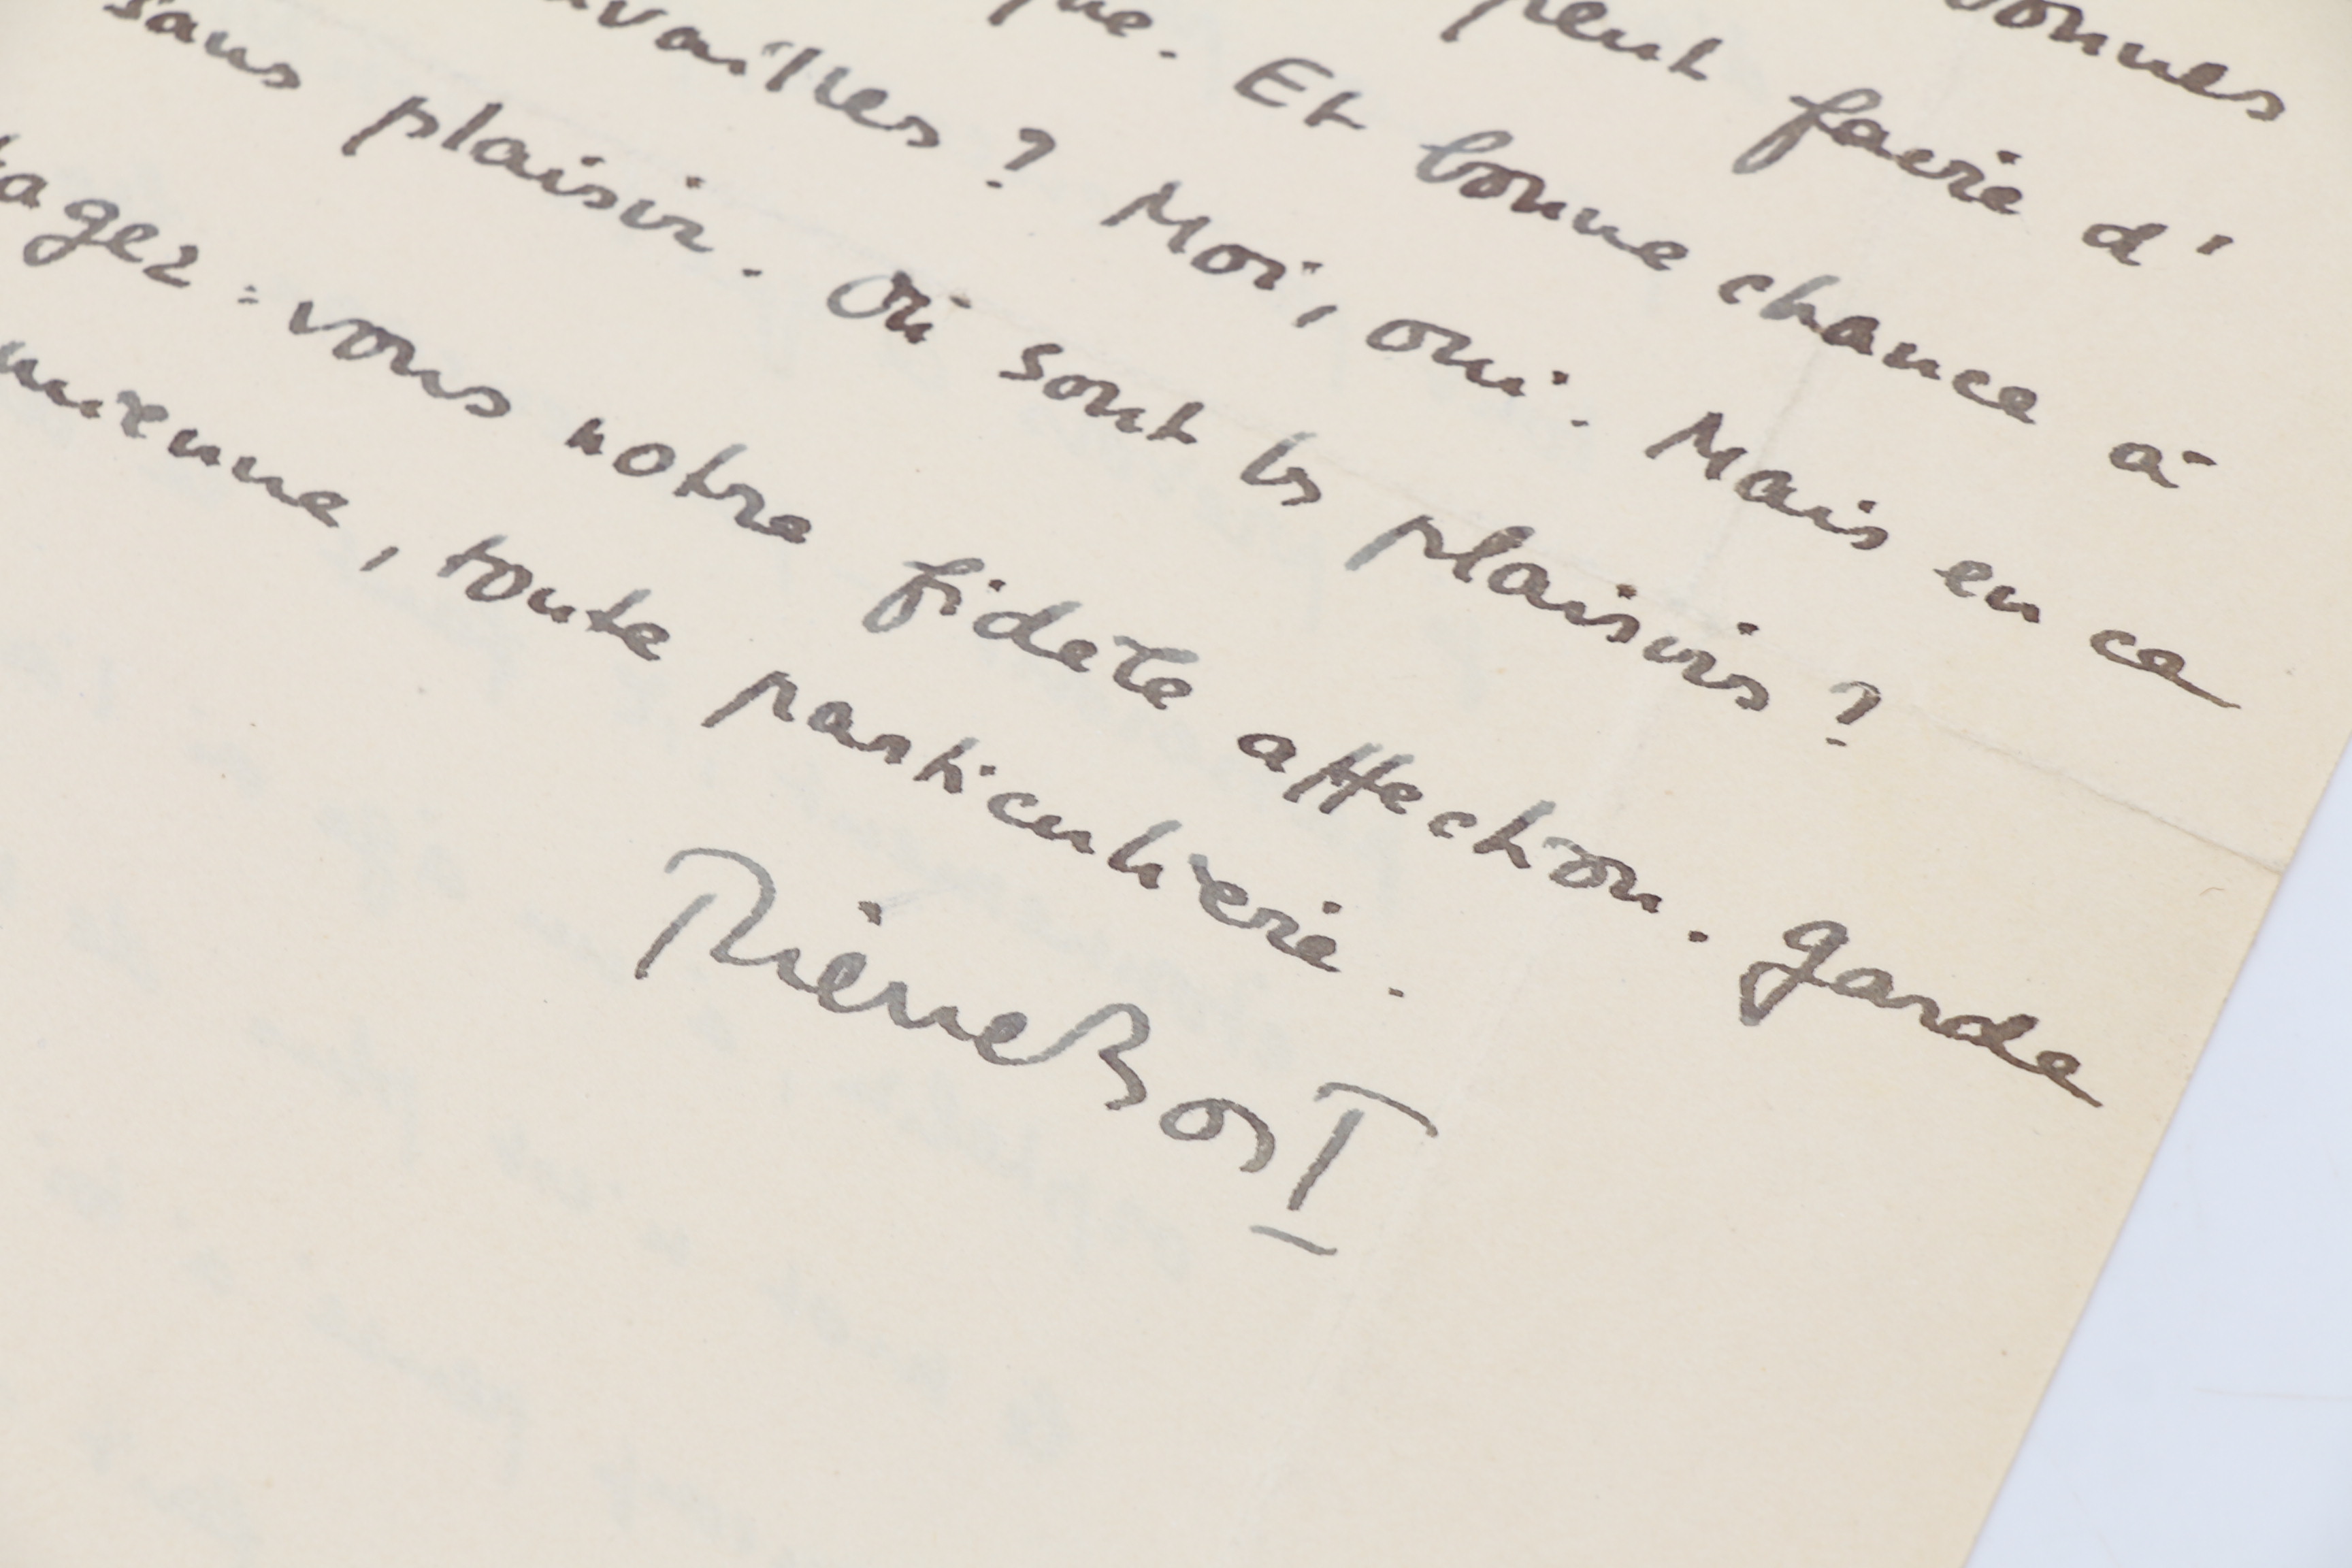 bonnes
peut faire d'
que. Et bonne chance à
vailles ? Moi, oui. Mais en ce
sans plaisir. Où sont les plaisirs ?
agez-vous notre fidèle affection. Garde
mienne, toute particulière.
Pierre Bost